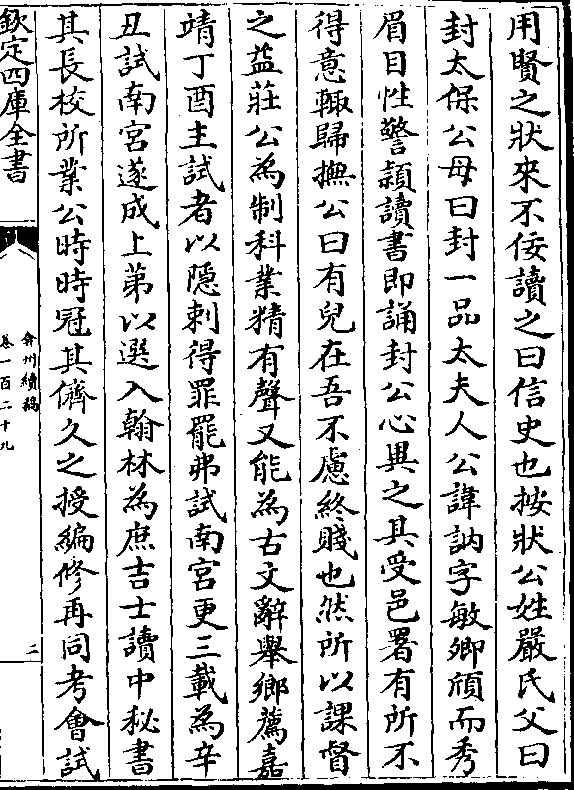 用賢之狀來不佞讀之曰信史也按狀公姓嚴氏父曰
封太保公母曰封一品太夫人公諱訥字敏卿頎而秀
眉目性警頴讀書即誦封公心異之其受邑署有所不
得意輒歸撫公曰有兒在吾不慮終賤也然所以課督
之益莊公為制科業精有聲又能為古文辭舉鄉薦嘉
靖丁酉主試者以隠刺得罪罷弗試南宫更三載為辛
丑試南宫遂成上第以選入翰林為庶吉士讀中秘書
其長校所業公時時冠其儕久之授編修再同考會試
欽定四庫全書
弇州續稿
卷一百二十九
三